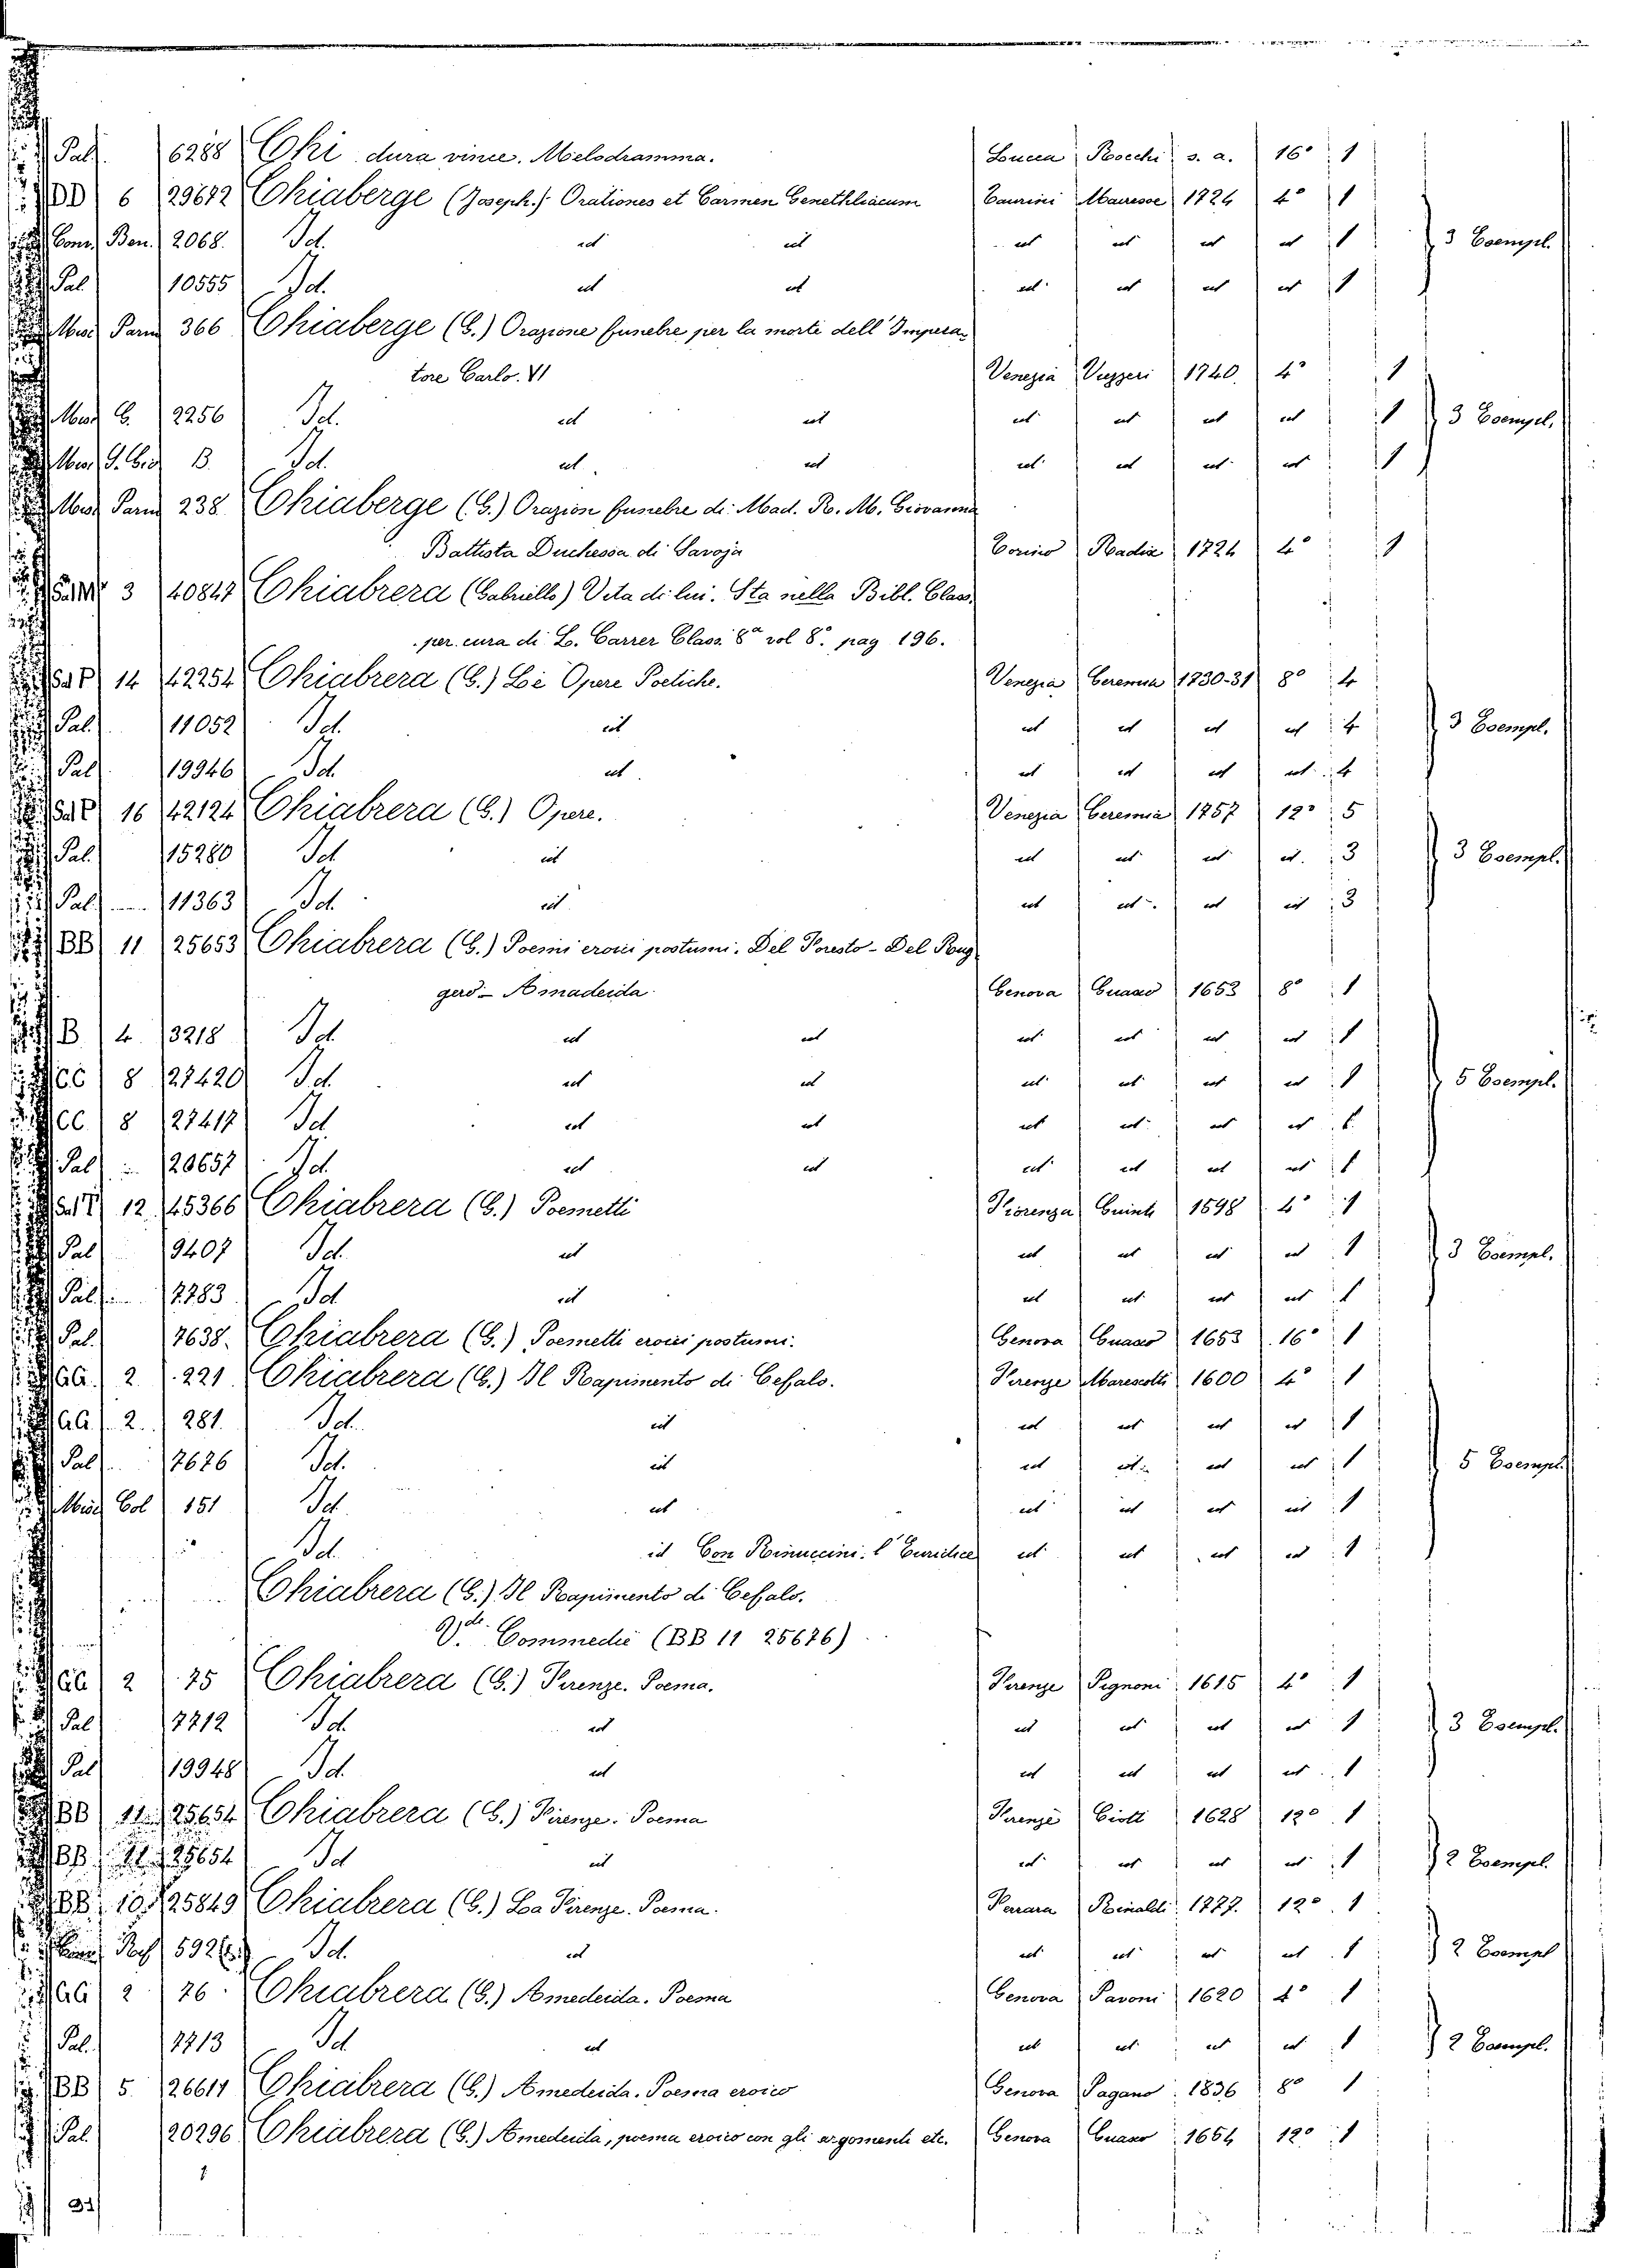 Pal. 6288 Chi dura vince. Melodramma. Lucca Rocchi s. a. 16° 1
DD 6 29672 Chiaberge (Joseph.) Orationes et Carmen Genethliacum Taurini Mairesse 1724 4° 1
Conv. Ben. 2068. Id. id id id id id id 1 3 Esempl.
Pal. 10555 Id. id id id id id id 1
Misc. Parm 366 Chiaberge (G.) Orazione funebre per la morte dell'Impera-
tore Carlo. VI Venezia Viezzeri 1740. 4° 1
Misc. G. 2256 Id. id id id id id id 1 3 Esempl.
Misc. B. Id. id id id id id id 1
Misc. Parm 238 Chiaberge (G.) Orazion funebre di Mad. R. M. Giovanna
Battista Duchessa di Savoja Torino Radix 1724 4° 1
3 40847 Chiabrera (Gabriello) Vita di lui. Sta nella Bibl. Class.
per cura di L. Carrer Class. 8ª vol 8°. pag 196.
Sal P 14 42254 Chiabrera (G.) Le Opere Poetiche. Venezia Geremia 1730-31 8° 4
Pal. 11052 Id. id id id id id 4 3 Esempl.
Pal. 19946 Id. id id id id id 4
Sal P 16 42124 Chiabrera (G.) Opere. Venezia Geremia 1757 12° 5
Pal. 15280 Id. id id id id id. 3 3 Esempl.
Pal. 11363 Id. id id id id id 3
BB 11 25653 Chiabrera (G.) Poemi eroici postumi. Del Foresto - Del Rug-
gero - Amadeida Genova Guasco 1653 8° 1
B 4. 3218 Id. id id id id id id 1
CC 8 27420 Id. id id id id id id 1 5 Esempl.
CC 8 27417 Id. id id id id id id 1
Pal. 20657 Id. id id id id id id 1
Sal P 12 45366 Chiabrera (G.) Poemetti Fiorenza Giunti 1598 4° 1
Pal. 9407 Id. id id id id id 1 3 Esempl.
Pal. 7783 Id. id id id id id 1
Pal. 7638. Chiabrera (G.) Poemetti eroici postumi. Genova Guasco 1653 16° 1
GG. 2 221 Chiabrera (G.) Il Rapimento di Cefalo. Firenze Marescotti 1600 4° 1
GG. 2. 281. Id. id id id id id 1
Pal. 7676 Id. id id id id id 1 5 Esempl.
Misc. Col 151 Id. id id id id id 1
Id. id Con Rinuccini. l'Euridice id id id id 1
Chiabrera (G.) Il Rapimento di Cefalo.
Vde. Commedie (BB 11 25676)
GG 2 75 Chiabrera (G.) Firenze. Poema. Firenze Pignoni 1615 4° 1
Pal. 7712 Id. id id id id id 1 3 Esempl.
Pal. 19948 Id. id id id id id 1
BB 11 25654 Chiabrera (G.) Firenze. Poema Firenze Ciotti 1628 12° 1
BB 11 25654 Id. id id id id id 1 2 Esempl.
BB 10 25849 Chiabrera (G.) La Firenze. Poema. Ferrara Rinaldi 1777. 12° 1
592 Id. id id id id id 1 2 Esempl
GG 2 76. Chiabrera (G.) Amedeida. Poema Genova Pavoni 1620 4° 1
Pal. 7713 Id. id id id id id 1 2 Esempl.
BB 5. 26611 Chiabrera (G.) Amedeida. Poema eroico Genova Pagano 1836 8° 1
Pal. 20296 Chiabrera (G.) Amedeida, poema eroico con gli argomenti etc. Genova Guasco 1654 12° 1